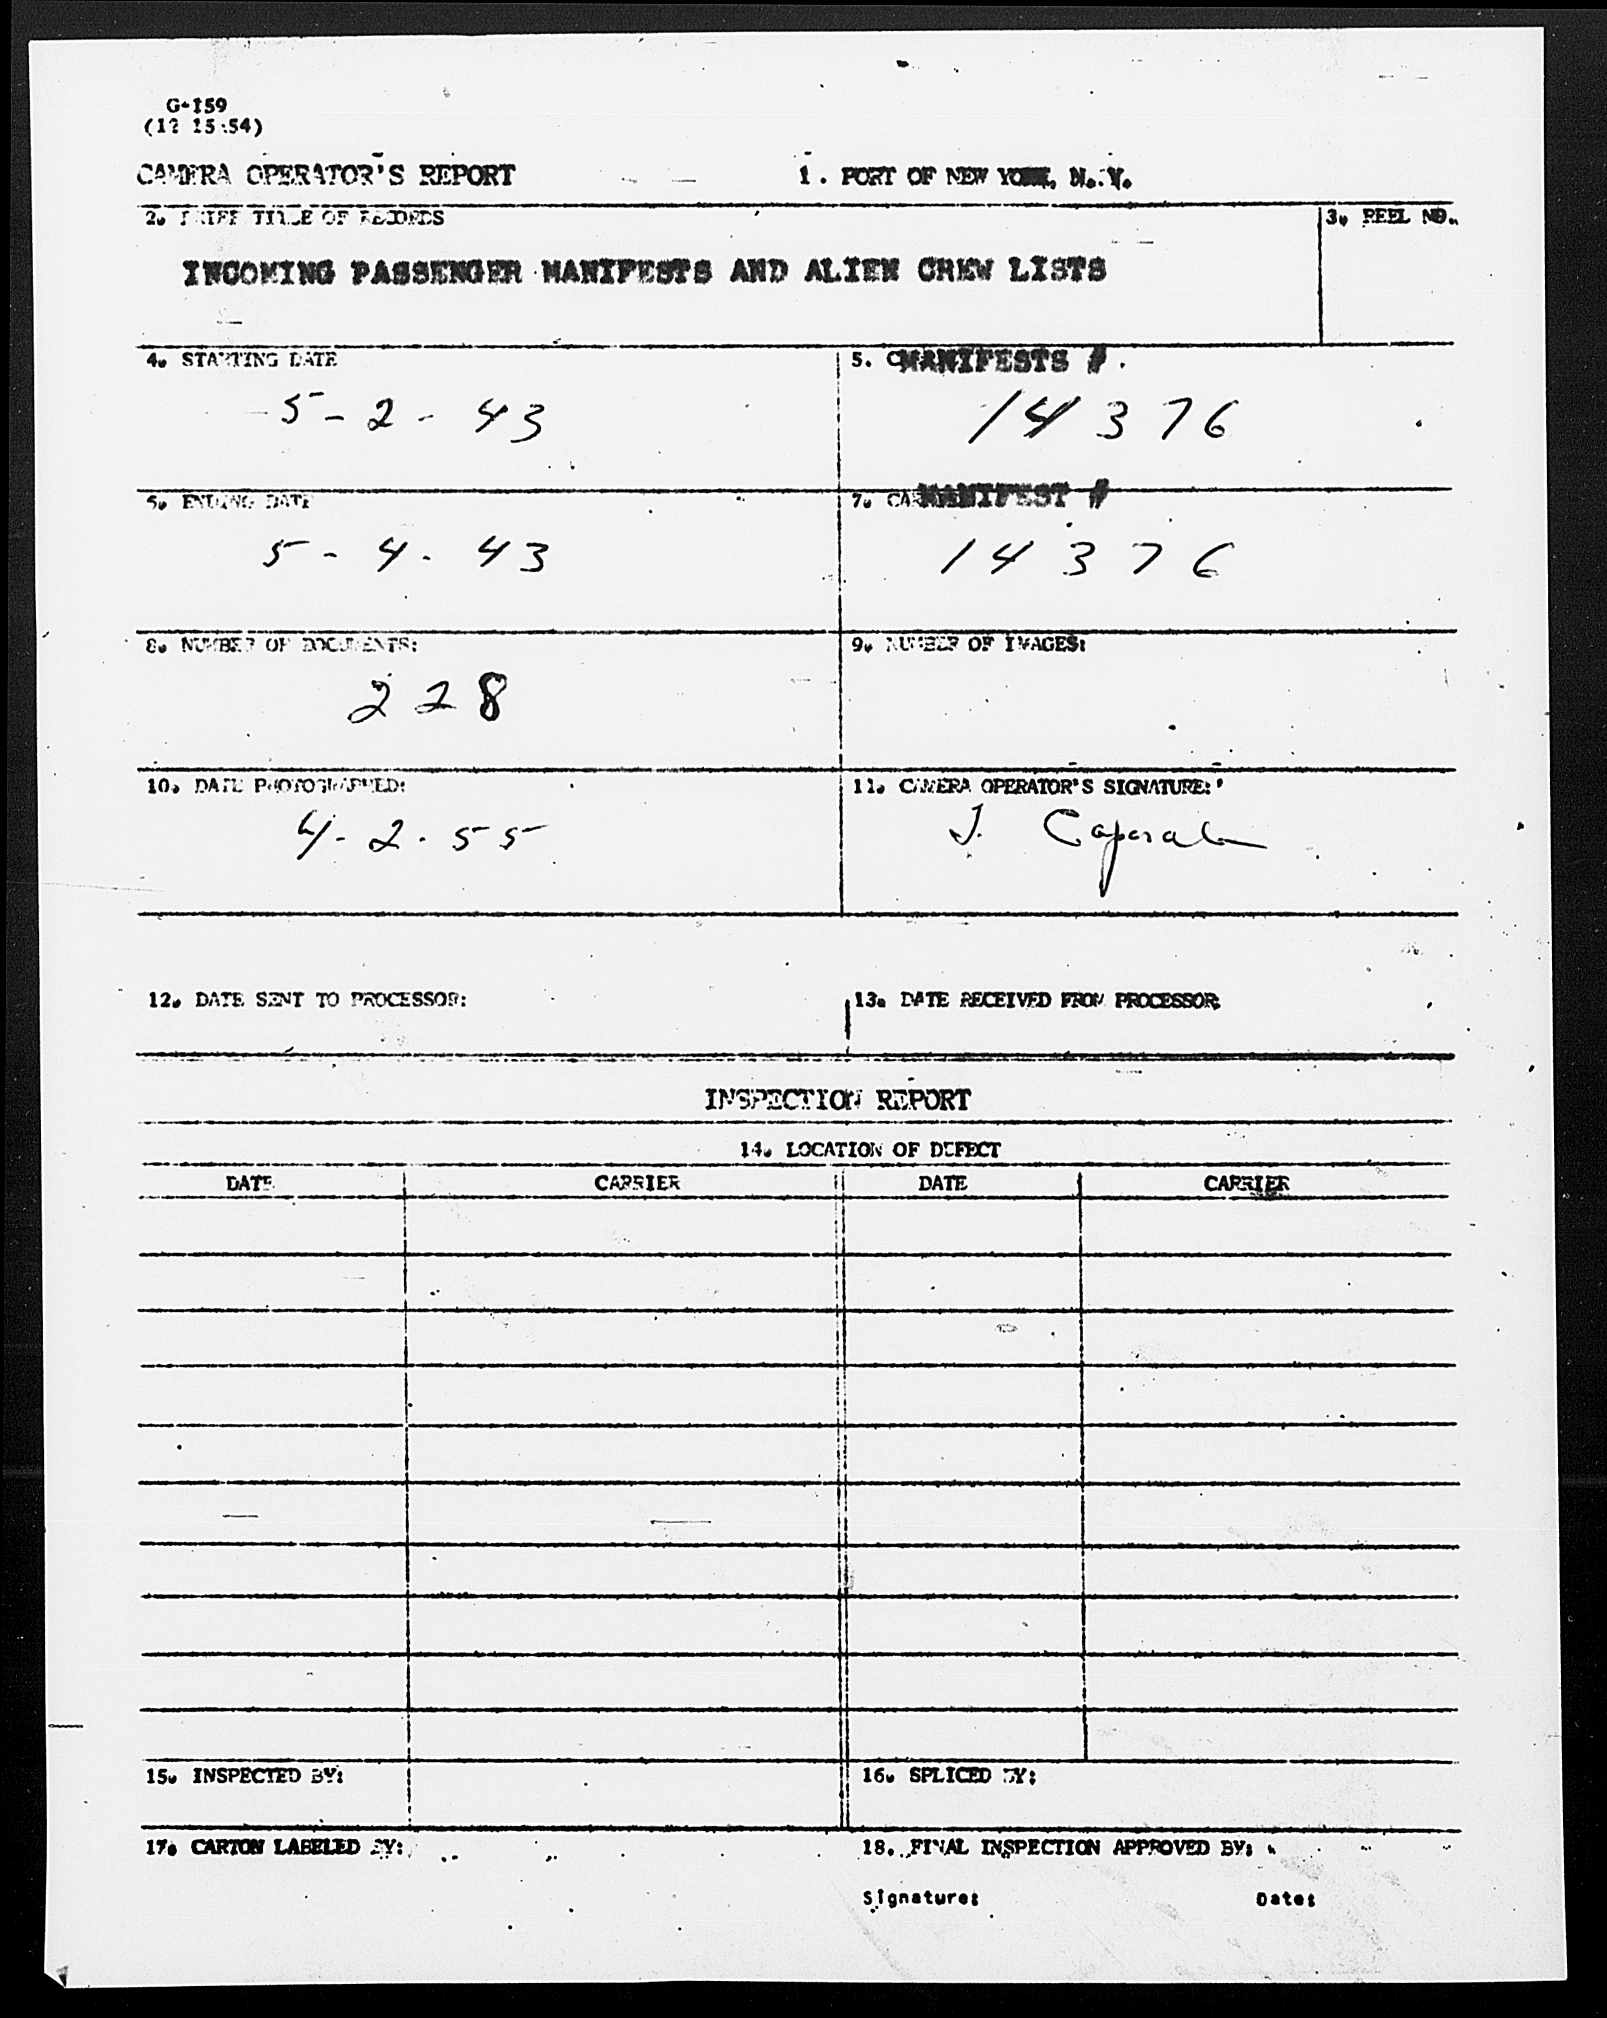 G-159
(12 15 54)
CAMERA OPERATOR'S REPORT
1. PORT OF NEW YORK, N. Y.
2. BRIEF TITLE OF RECORDS
3. REEL NO.
INCOMING PASSENGER MANIFESTS AND ALIEN CREW LISTS
4. STARTING DATE
5. MANIFESTS #
5-2-43
14376
6. ENDING DATE
7. MANIFEST #
5-4-43
14376
8. NUMBER OF DOCUMENTS:
9. NUMBER OF IMAGES:
228
10. DATE PHOTOGRAPHED:
11. CAMERA OPERATOR'S SIGNATURE:
4-2-55
J.
12. DATE SENT TO PROCESSOR:
13. DATE RECEIVED FROM PROCESSOR
INSPECTION REPORT
14. LOCATION OF DEFECT
DATE CARRIER DATE CARRIER
15. INSPECTED BY:
16. SPLICED BY:
17. CARTON LABELED BY:
18. FINAL INSPECTION APPROVED BY:
Signature: Date: